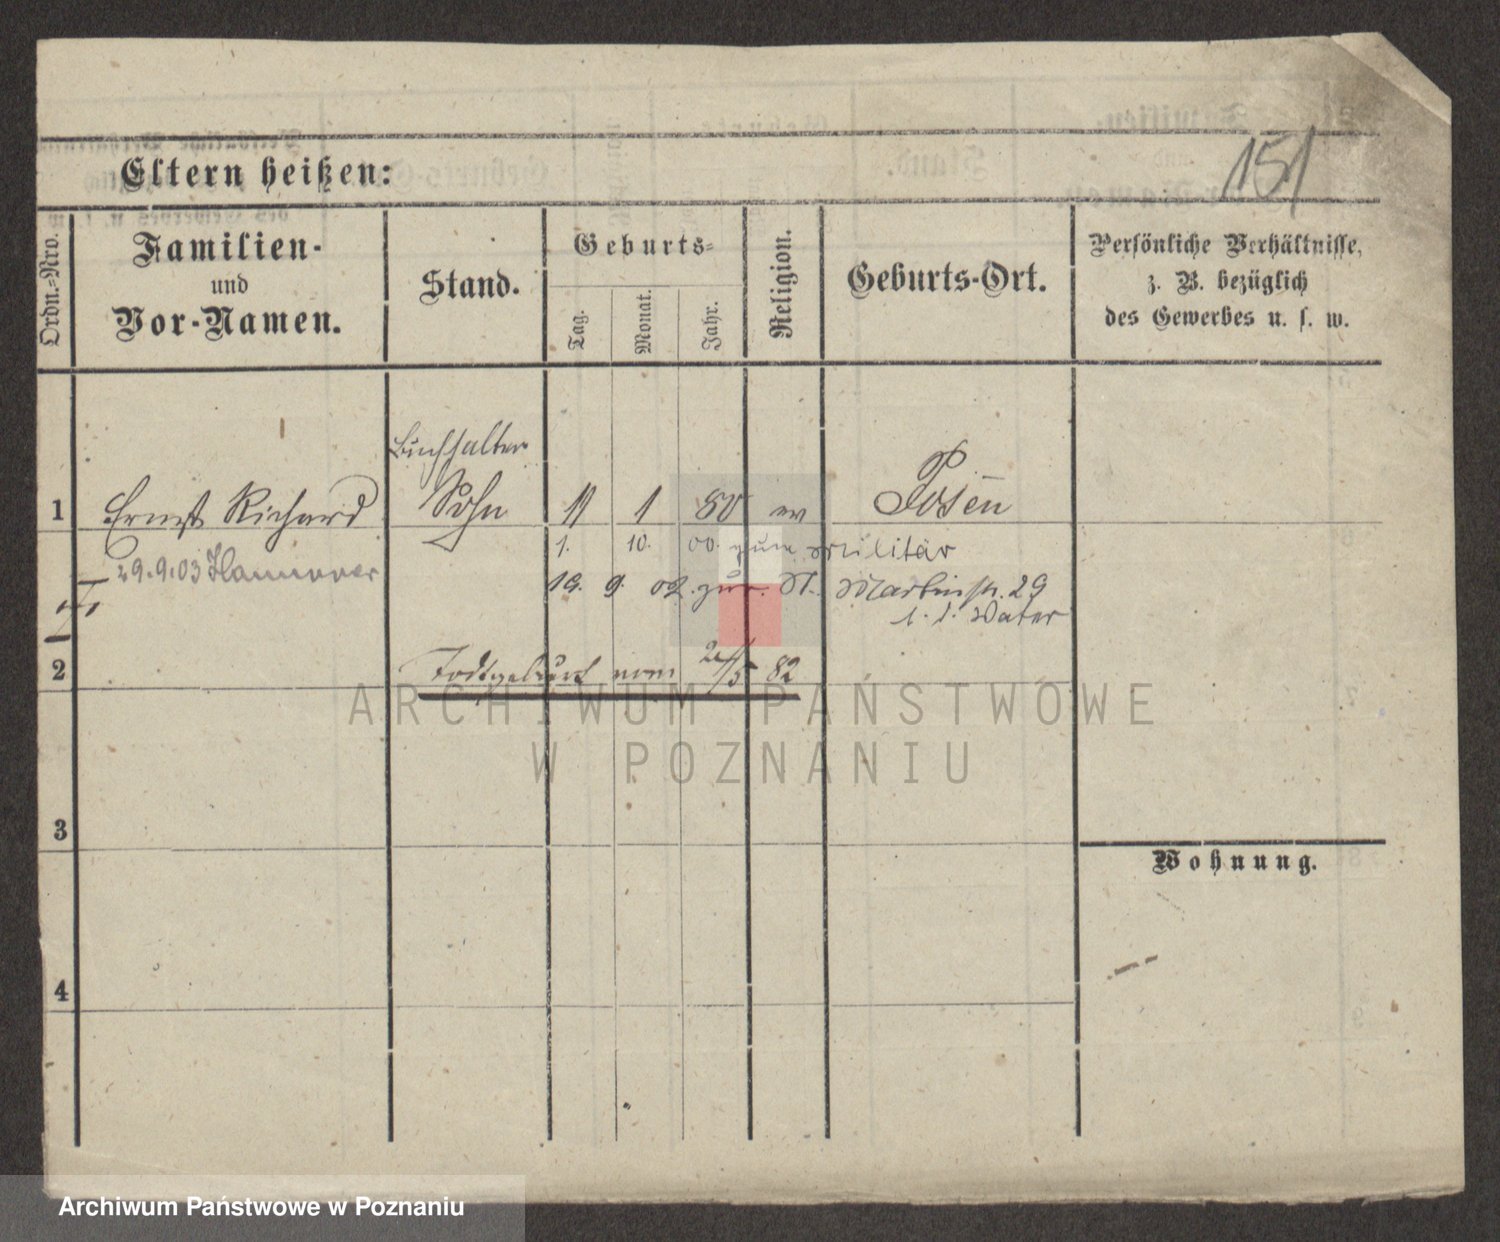 151
Eltern heißen:
Ordn.-Nro.
Familien-
und
Vor-Namen.
Stand.
Geburts-
Tag.
Monat.
Jahr.
Religion.
Geburts-Ort.
Persönliche Verhältnisse,
z. B. bezüglich
des Gewerbes u. s. w.
Buchhalter
1 Ernst Richard Sohn 11 1 80 ev Posen
1. 10. 00. zum Militär
29.9.03 Hannover
19. 9. 02. zur. St. Martinstr. 29
z. d. Vater
2 Todtgeburt vom 2/5 82
3
Wohnung.
4
ARCHIWUM PAŃSTWOWE
W POZNANIU
Archiwum Państwowe w Poznaniu